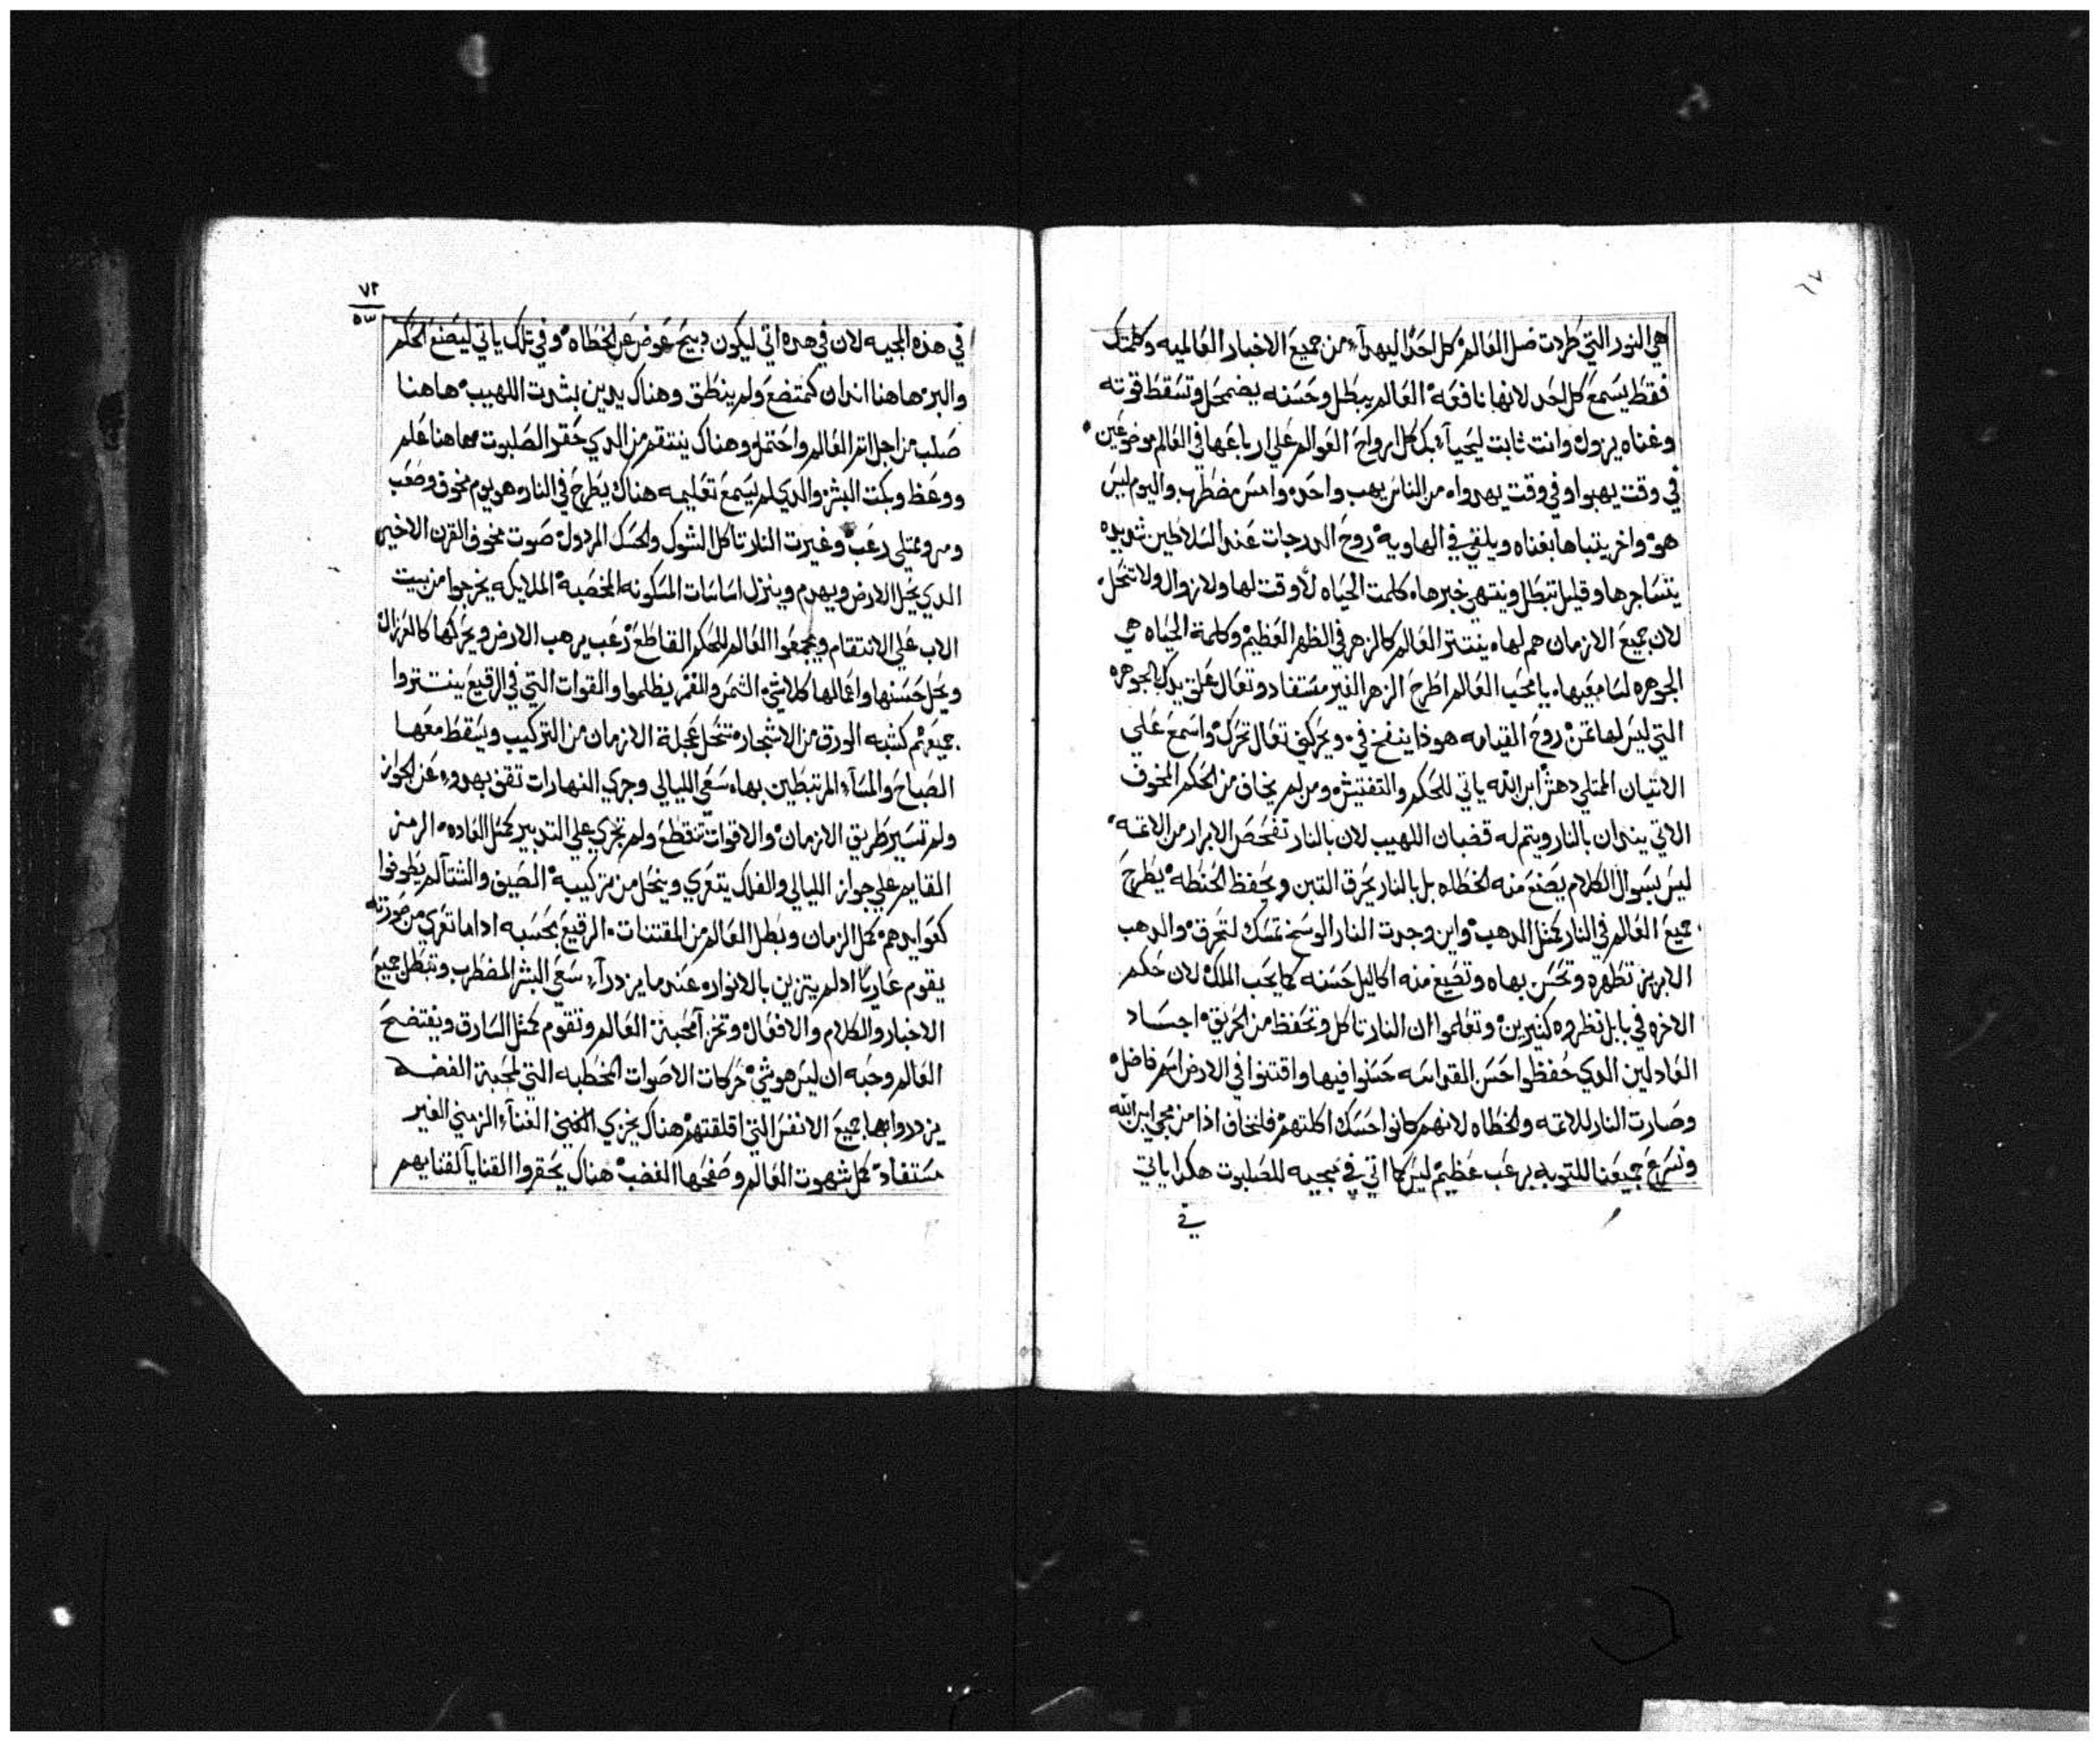 ٦٧
هي النور التي طردت ضل العالم كل احد اليهدآ من جميع الاخبار العالميه وكلمتك
فقط يسمع كل احد لانها نافعه العالم يبطل وحسنه يضمحل وتسقط قوته
وغناه يزول وانت ثابت ليحيآ بك كل ارواح العوالم علي ارباعها في العالم موضوعين
في وقت يهبوا وفي وقت يهدوا من الناس يهب واحد وامس مضطرب واليوم ليس
هو واخر يتباها بغناه ويلقي في الهاويه روح الدرجات عند السلاطين شديده
يتشاجرها وقليل تبطل وينتهي خبرها كلمت الحياه لا وقت لها ولا زوال ولا تنحل
لان جميع الازمان هم لها ينتتر العالم كالزهر في الظهر العظيم وكلمة الحياه هي
الجوهره لسامعيها يا محب العالم اطرح الزهر الغير مستفاد وتعال علق بدلك الجوهره
التي ليس لها تمن روح القيامه هوذا ينفخ في ويحركني تعال تحرك واسمع علي
الاتيان الممتلي دهش ابن الله ياتي للحكم والتفتيش ومن لم يخاف من الحكم المخوف
الاتي بنيران بالنار ويتم له قضبان اللهيب لان بالنار تفحص الابرار من الاتمه
ليس بسوال الكلام يصنع منه الخطاه بل بالنار يحرق التبن ويحفظ الحنطه يطرح
جميع العالم في النار كمتل الدهب واين وجدت النار الوسخ تمسك لتحرق والدهب
الابريز تطهره وتحسن بهاه وتصيغ منه اكاليل حسنه كما يحب الملك لان حكم
الاخره في بابل نظروه كتيرين وتعلموا ان النار تاكل وتحفظ من الحريق اجساد
العادلين الدي حفظوا حسن القداسه حسنوا فيها واقتنوا في الارض اسم فاضل
وصارت النار للاتمه والخطاه لانهم كانوا حسك اكلتهم فلنخاف ادا من مجي ابن الله
ونسرع جميعنا للتوبه برعب عظيم ليس كما اتي في مجيه للصلبوت هكدا ياتي
في
٧٢
٥٣
في هذه المجيه لان في هده اتي ليكون دبيح عوض عن الخطاه وفي تلك ياتي ليصنع الحكم
والبر هاهنا اندان كمتضع ولم ينطق وهناك يدين بشدت اللهيب هاهنا
صلب من اجل اتم العالم واحتمل وهناك ينتقم من الدي حقر الصلبوت هاهنا علم
ووعظ وبكت البشر والدي لم يسمع تعليمه هناك يطرح في النار هو يوم مخوف وصعب
ومر وممتلي رعب وغيرت النار تاكل الشوك والحسك المردول صوت مخوف القرن الاخير
الدي يحل الارض ويهدم وينزل اساسات المسكونه المخصبه الملايكه يخرجوا من بيت
الاب علي الانتقام ويجمعوا العالم للحكم القاطع رعب يرهب الارض ويحركها كالعرزال
ويحل حسنها واعمالها كلا شي الشمس والقمر يظلموا والقوات التي في الرقيع ينتتروا
جميعهم كشبه الورق من الاشجار تنحل عجلة الازمان من التركيب ويسقط معها
الصباح والمسآ المرتبطين بها سعي الليالي وجري النهارات تقف بهدو عن الجواز
ولم تسير طريق الازمان والاقوات تنقطع ولم تجري علي التدبير كمتل العاده الرمز
القايم علي جواز الليالي والفلك يتعري وينحل من تركيبه الصيف والشتآ لم يطوفوا
كعوايدهم كمل الزمان وبطل العالم من المقتنات الرقيع بحسبه اداما تعري من صورته
يقوم عاريا ادلم يتزين بالانوار عندما يزدرآ سعي البشر المضطرب وتبطل جميع
الاخبار والكلام والافعال وتخزآ محبة العالم وتقوم كمتل السارق ويفتضح
العالم وحبه ان ليس هو شي حركات الاصوات المخطبه التي لمحبة الفضه
يزدروا بها جميع الانفس التي اقلقتهم هناك يخزي الغني الغنآ الزمني الغير
مستفاد كمل شهوت العالم وصفحها الغضب هناك يحقروا القنايا لقنايهم